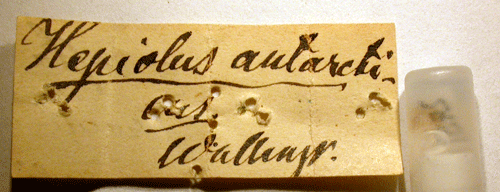 Hepiolus antarcti-
cus.
Wallengr.